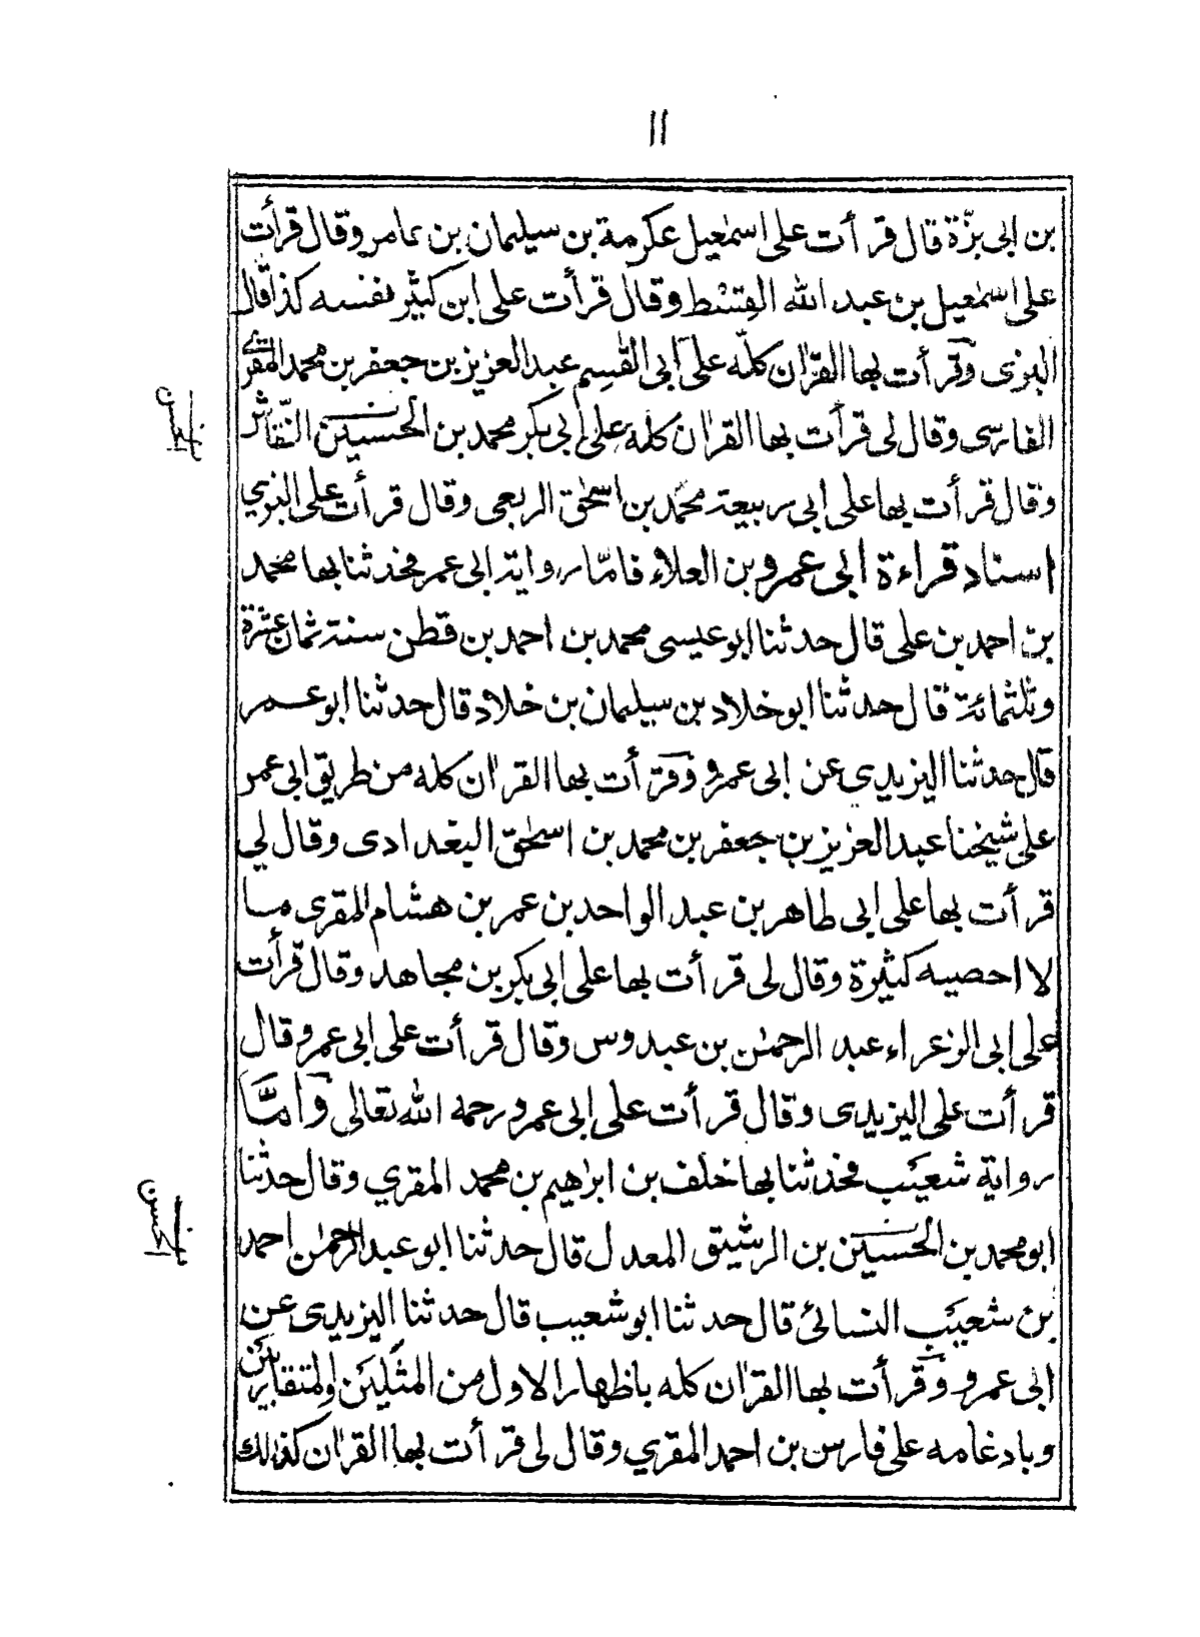 ١١
بن ابى بزّة قال قرأت على اسمٰعيل عكرمة بن سليمان بن عامر وقال قرأت
على اسمٰعيل بن عبد الله القِسْط وقال قرأت على ابن كثير نفسه كذا قال
البزى وقرأت بها القراٰن كلّه على ابى القٰسِم عبد العزيز بن جعفر بن محمد المقرئ
الفارسى وقال لى قرأت بها القراٰن كله على ابى بكر محمد بن الحسين النقّاش
الحسن
وقال قرأت بها على ابى ربيعة محمّد بن اسحٰق الربعى وقال قرأت على البزي
اسناد قراءة ابى عمرو بن العلاء فامّا رواية ابى عمر فحدثنا بها محمد
بن احمد بن على قال حدثنا ابو عيسى محمد بن احمد بن قطن سنة ثمان عشرة
وثلثمائة قال حدثنا ابو خلاد بن سليمان بن خلاد قال حدثنا ابو عمر
قال حدثنا اليزيدى عن ابى عمرو وقرأت بها القراٰن كله من طريق ابى عمر
على شيخنا عبد العزيز بن جعفر بن محمد بن اسحٰق البغدادى وقال لي
قرأت بها على ابى طاهر بن عبد الواحد بن عمر بن هشام المقرى ما
لا احصيه كثيرة وقال لى قرأت بها على ابى بكر بن مجاهد وقال قرأت
على ابى الزعراء عبد الرحمٰن بن عبدوس وقال قرأت على ابى عمرو قال
قرأت على اليزيدى وقال قرأت على ابى عمرو رحمه الله تعالى وامّا
رواية شعيب فحدثنا بها خلف بن ابرٰهيم بن محمد المقري وقال حدثنا
ابو محمد بن الحسين بن الرشيق المعدل قال حدثنا ابو عبد الرحمٰن احمد
الحسن
بن شعيب النسائى قال حدثنا ابو شعيب قال حدثنا اليزيدى عن
ابى عمرو وقرأت بها القراٰن كله باظهار الاول من المثلين والمتقاربين
وبادغامه على فارس بن احمد المقري وقال لى قرأت بها القراٰن كذلك